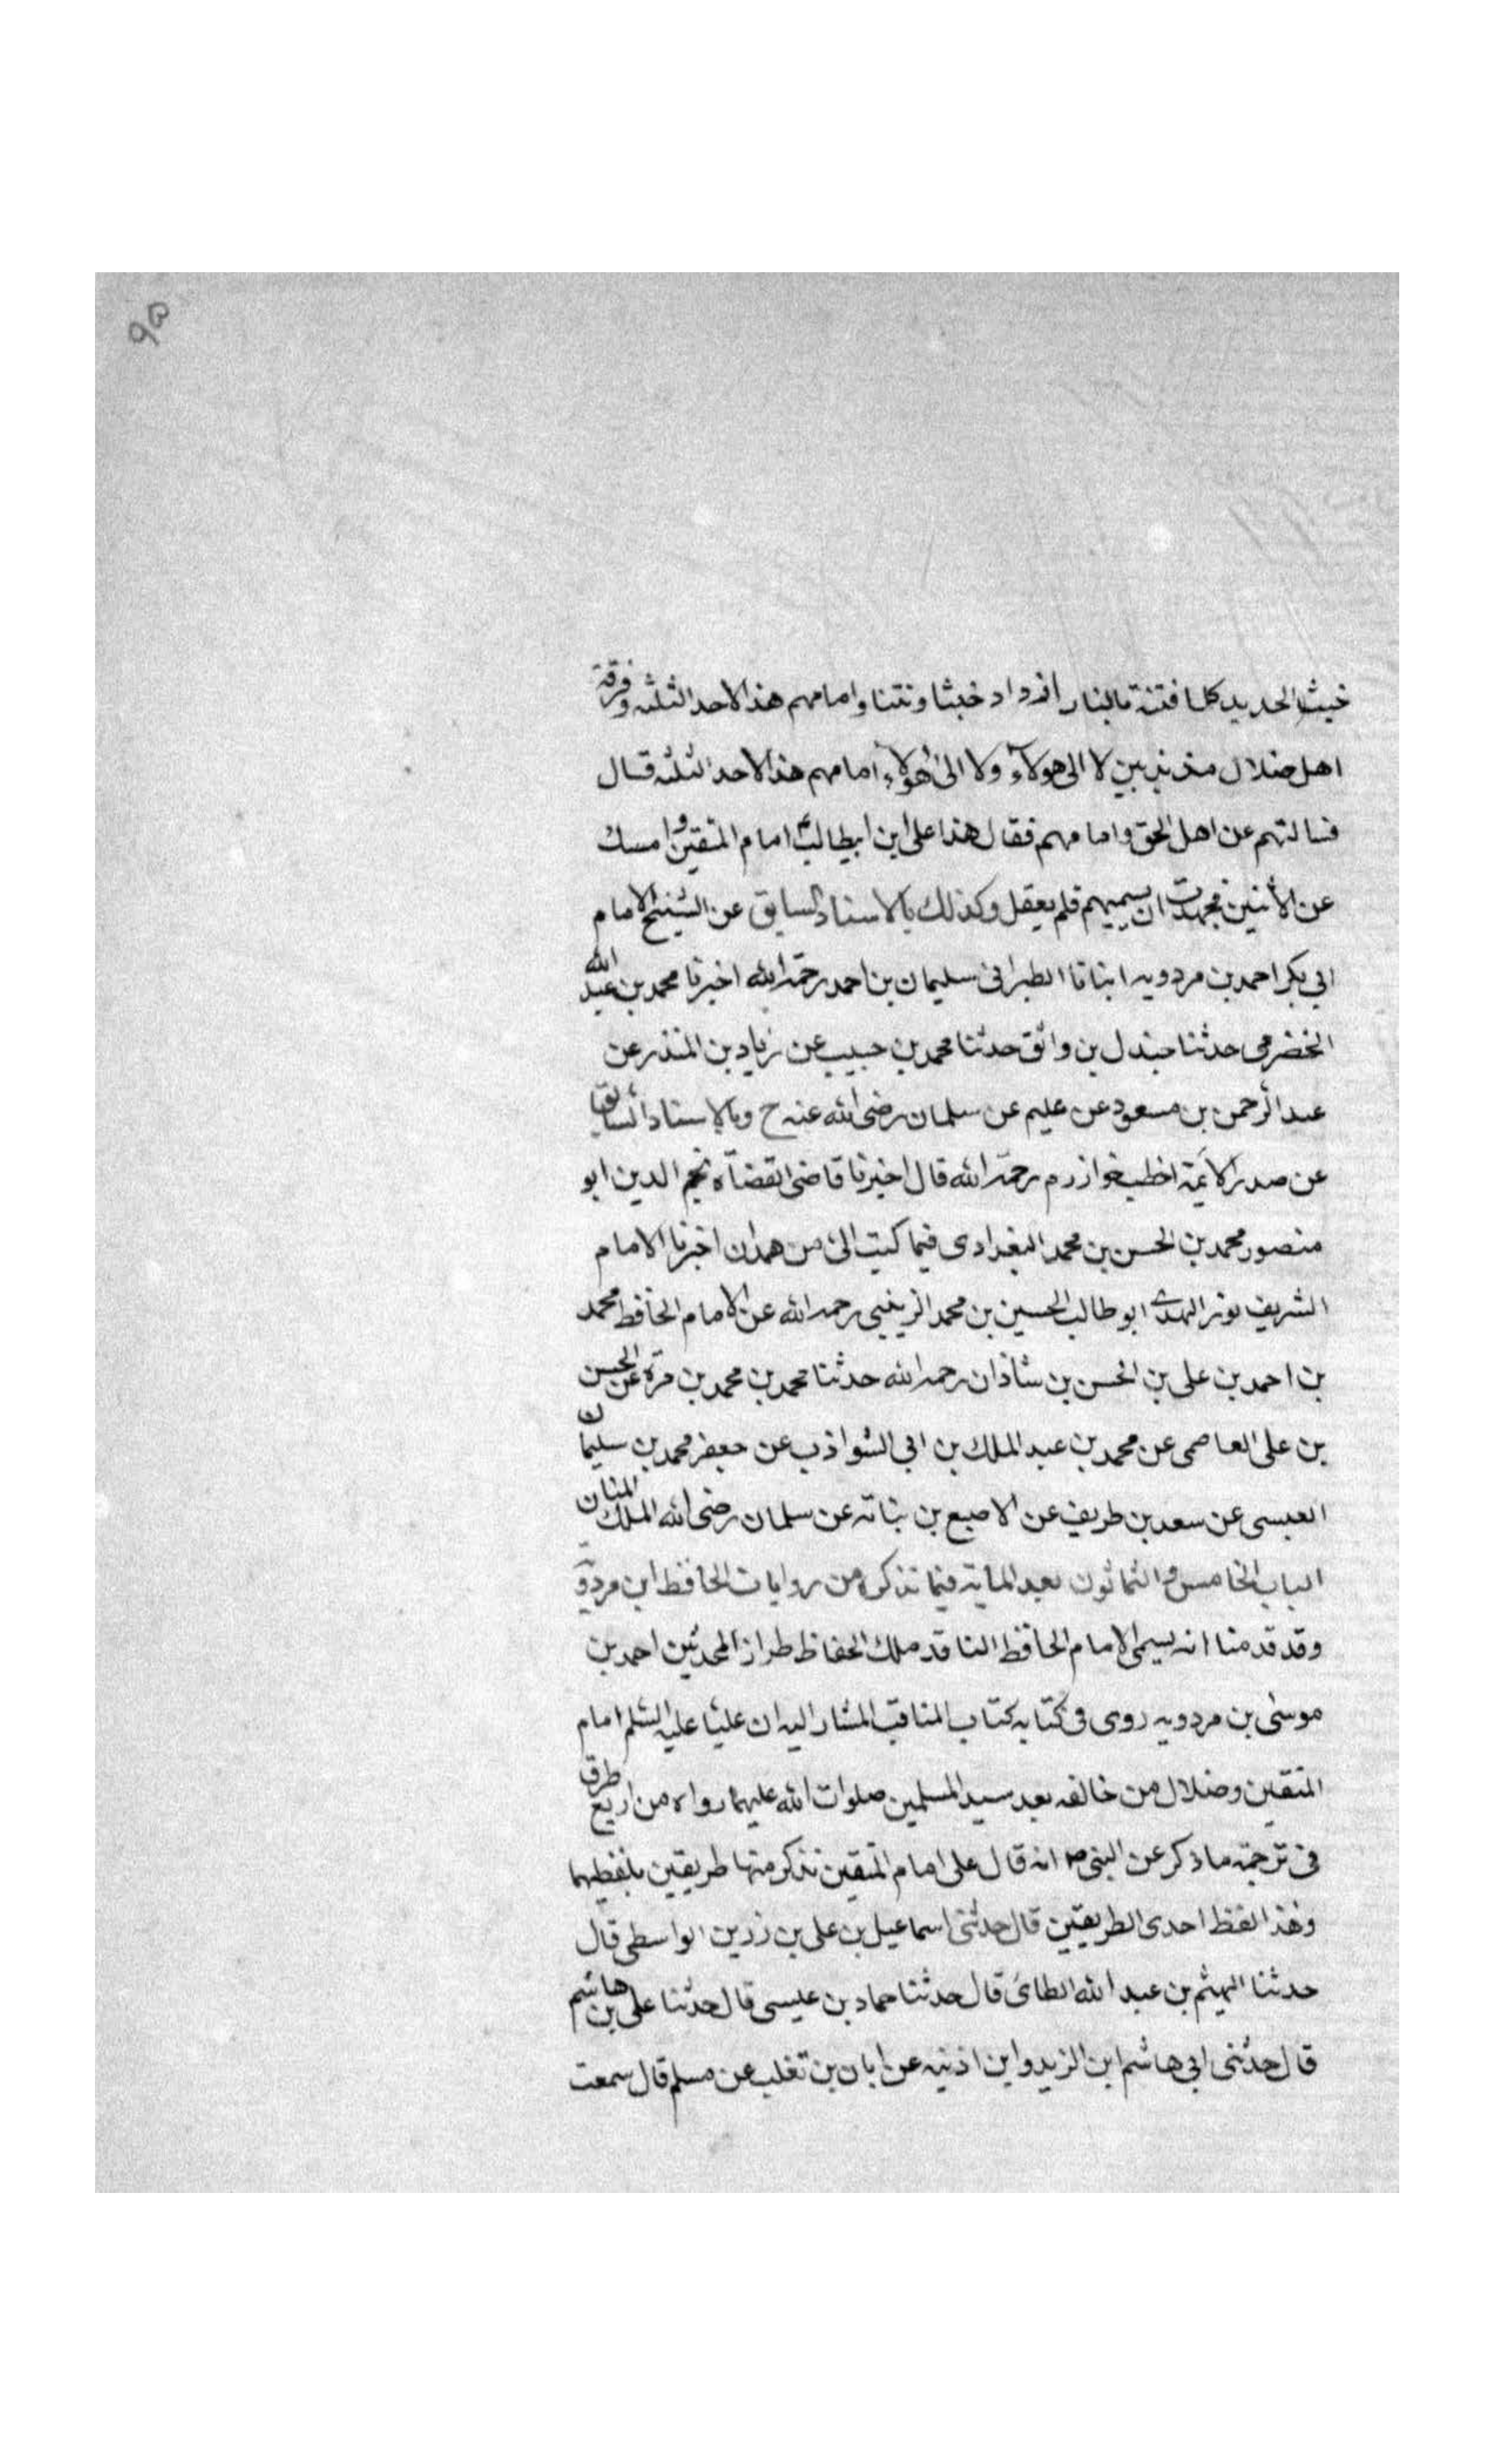 ٩٥
خبث الحديد كلما فتنته بالنار ازداد خبثا ونتنا وامامهم هذا لاحد الثلثه وفرقة
اهل ضلال مذبذبين لا الى هولآء ولا الى هؤلاء امامهم هذا لاحد الثلثه قال
فسالتهم عن اهل الحق وامامهم فقال هذا على ابن ابيطالبؑ امام المتقين وامسك
عن الأثنين فجهدت ان يسميهم فلم يفعل وكذلك بالاسناد السابق عن الشيخ الامام
ابي بكر احمد بن مردويه انبانا الطبرانى سليمان بن احمد رحمة الله اخبرنا محمد بن عبد الله
الخضرمى حدثنا جندل بن واثق حدثنا محمد بن حبيب عن زياد بن المنذر عن
عبد الرحمن بن مسعود عن عليم عن سلمان رضى الله عنه ح وبالإسناد السابق
عن صدر الائمة اخطب خوارزم رحمة الله قال اخبرنا قاضى القضاة نجم الدين ابو
منصور محمد بن الحسن بن محمد البغدادى فيما كتب الىّ من همدان اخبرنا الامام
الشريف نور الهدى ابو طالب الحسين بن محمد الزينبى رحمه الله عن الامام الحافظ محمد
بن احمد بن على بن الحسن بن شاذان رحمه الله حدثنا محمد بن محمد بن مرة عن الحسن
بن على العاصمى عن محمد بن عبد الملك بن ابي الشواذب عن جعفر محمد بن سليمان
العبسى عن سعد بن طريف عن الاصبع بن نباته عن سلمان رضى الله الملك المنان
الباب الخامس والثمانون بعد الماية فيما نذكره من روايات الحافظ ابن مردو
وقد قدمنا انه يسمى الامام الحافظ الناقد ملك الحفاظ طراز المحدثين احمد بن
موسى بن مردويه روى فى كتابه كتاب المناقب المشار اليه ان عليّا عليه السّلم امام
المتقين وضلال من خالفه بعد سيد المسلمين صلوات الله عليهما رواه من اربع طرق
فى ترجمة ما ذكر عن النبى ص انه قال على امام المتقين نذكر منها طريقين بلفظيهما
وهذا لفظ احدى الطريقين قال حدثنى اسماعيل بن على بن رزين الواسطى قال
حدثنا الهيثم بن عبد الله الطائ قال حدثنا حماد بن عليسى قال حدثنا على بن هاشم
قال حدثنى ابي هاشم ابن الزيد وابن اذنيه عن ابان بن تغلب عن مسلم قال سمعت